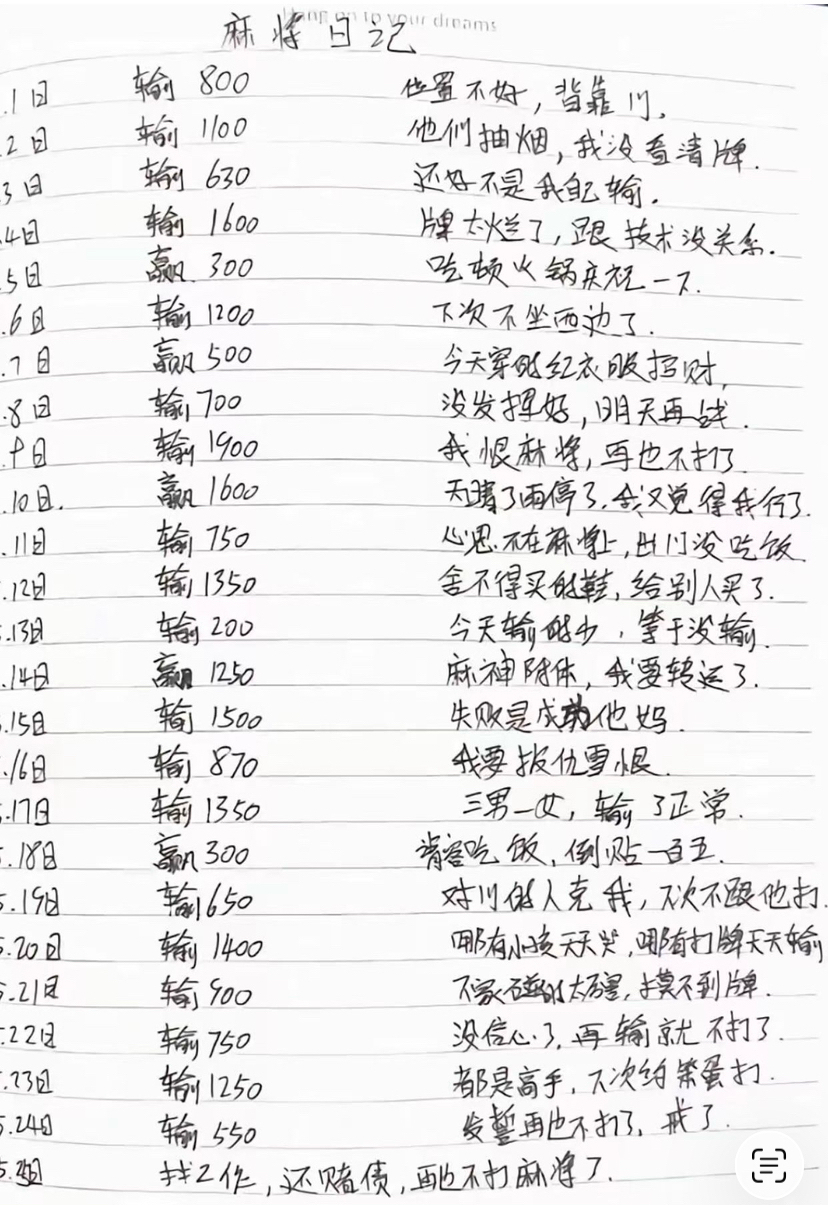 Hang on to your dreams
麻将日记
.1日 输 800 位置不好，背靠门.
.2日 输 1100 他们抽烟，我没看清牌.
3日 输 630 还好不是我自己输.
.4日 输 1600 牌太烂了，跟技术没关系.
.5日 赢 300 吃顿火锅庆祝一下.
.6日 输 1200 下次不坐西边了.
.7日 赢 500 今天穿的红衣服招财，
.8日 输 700 没发挥好，明天再战.
.9日 输 1900 我恨麻将，再也不打了.
.10日. 赢 1600 天晴了雨停了.我又觉得我行了.
.11日 输 750 心思不在麻将上，出门没吃饭
.12日 输 1350 舍不得买的鞋，给别人买了.
.13日 输 200 今天输的少，等于没输.
.14日 赢 1250 麻神附体，我要转运了.
.15日 输 1500 失败是成功他妈.
./16日 输 870 我要报仇雪恨.
.17日 输 1350 三男一女，输了正常.
5.18日 赢 300 请客吃饭，倒贴一百五.
5.19日 输 1650 对门的人克我，下次不跟他打.
5.20日 输 1400 哪有小孩天天哭，哪有打牌天天输
5.21日 输 900 下家碰的太厉害，摸不到牌.
5.22日 输 750 没信心了，再输就不打了.
5.23日 输 1250 都是高手，下次约笨蛋打.
5.24日 输 550 发誓再也不打了，戒了.
找工作，还赌债，再也不打麻将了.